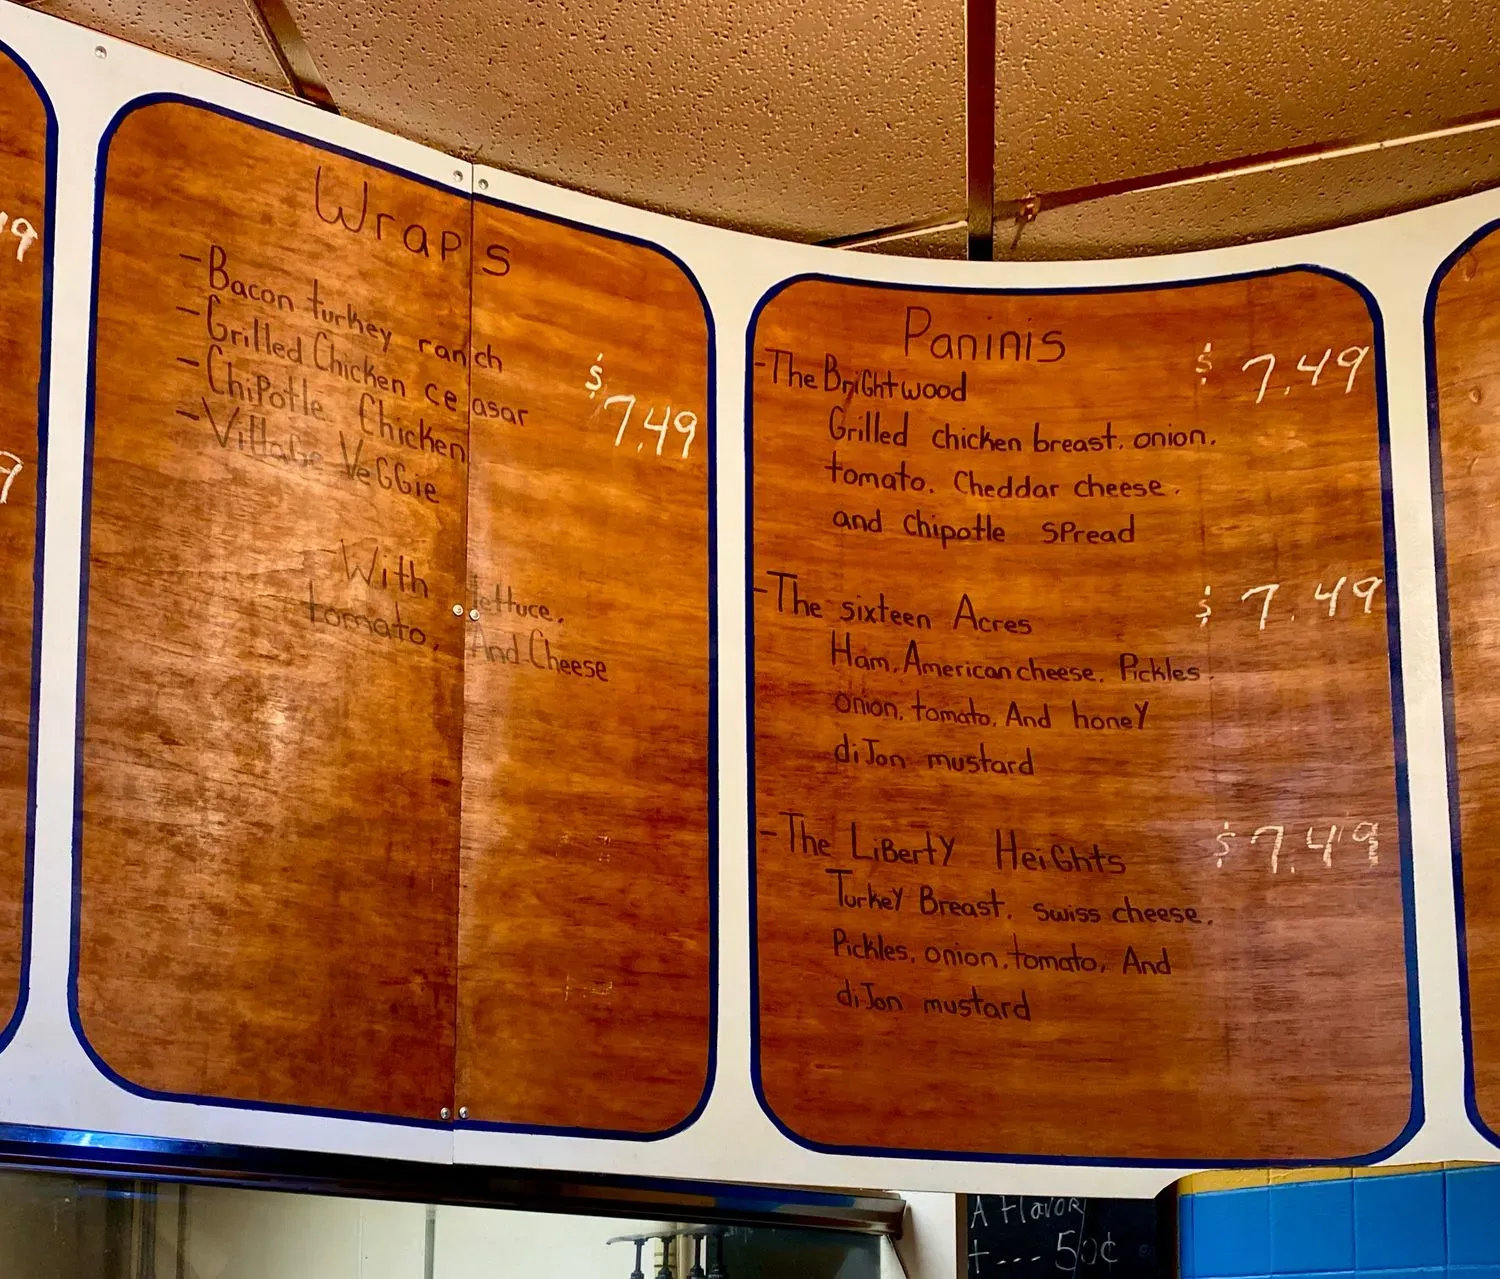 Wraps
-Bacon turkey ranch
-Grilled Chicken ceasar
-ChiPotle Chicken
-Village VeGGie
$7.49
With lettuce,
tomato, And Cheese
Paninis
-The BriGhtwood $7.49
Grilled chicken breast, onion,
tomato, Cheddar cheese,
and Chipotle SPread
-The sixteen Acres $7.49
Ham, American cheese, Pickles,
onion, tomato, And honeY
diJon mustard
-The LiBertY HeiGhts $7.49
TurkeY Breast, swiss cheese,
Pickles, onion, tomato, And
diJon mustard
A Flavor
50¢